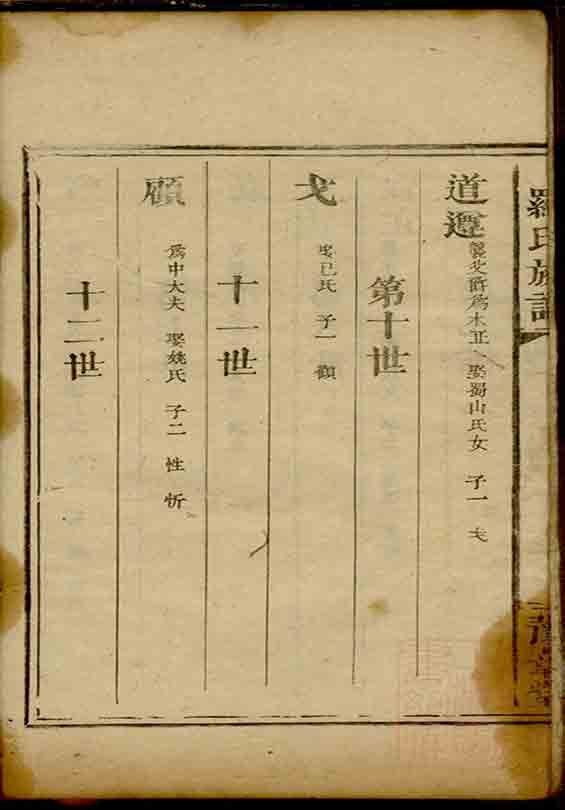 羅氏族譜
道遷 襲父爵為木正 娶蜀山氏女 子一 戈
第十世
戈 娶己氏 子一 顧
十一世
顧 為中大夫 娶姚氏 子二 性 忻
十二世